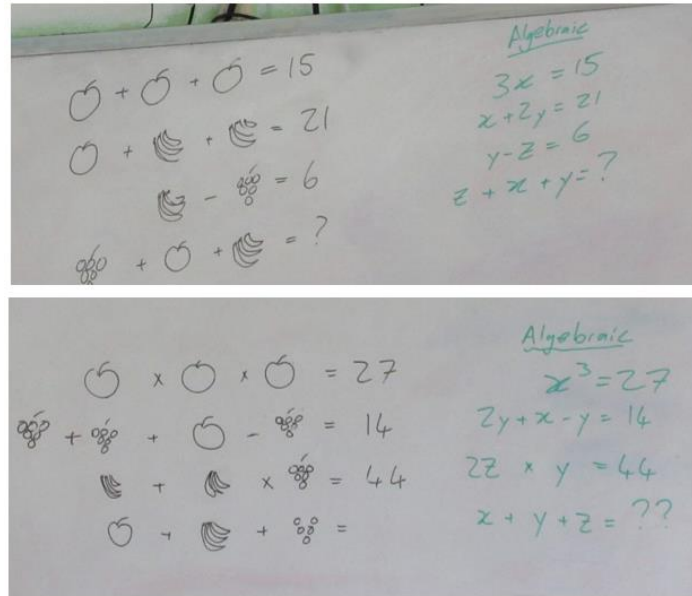 + + = 15
+ + = 21
- = 6
+ + = ?
Algebraic
3x = 15
x+2y = 21
y-z = 6
z + x + y = ?
x x = 27
+ + - = 14
+ x = 44
+ + =
Algebraic
x³ = 27
2y + x - y = 14
2z x y = 44
x + y + z = ??